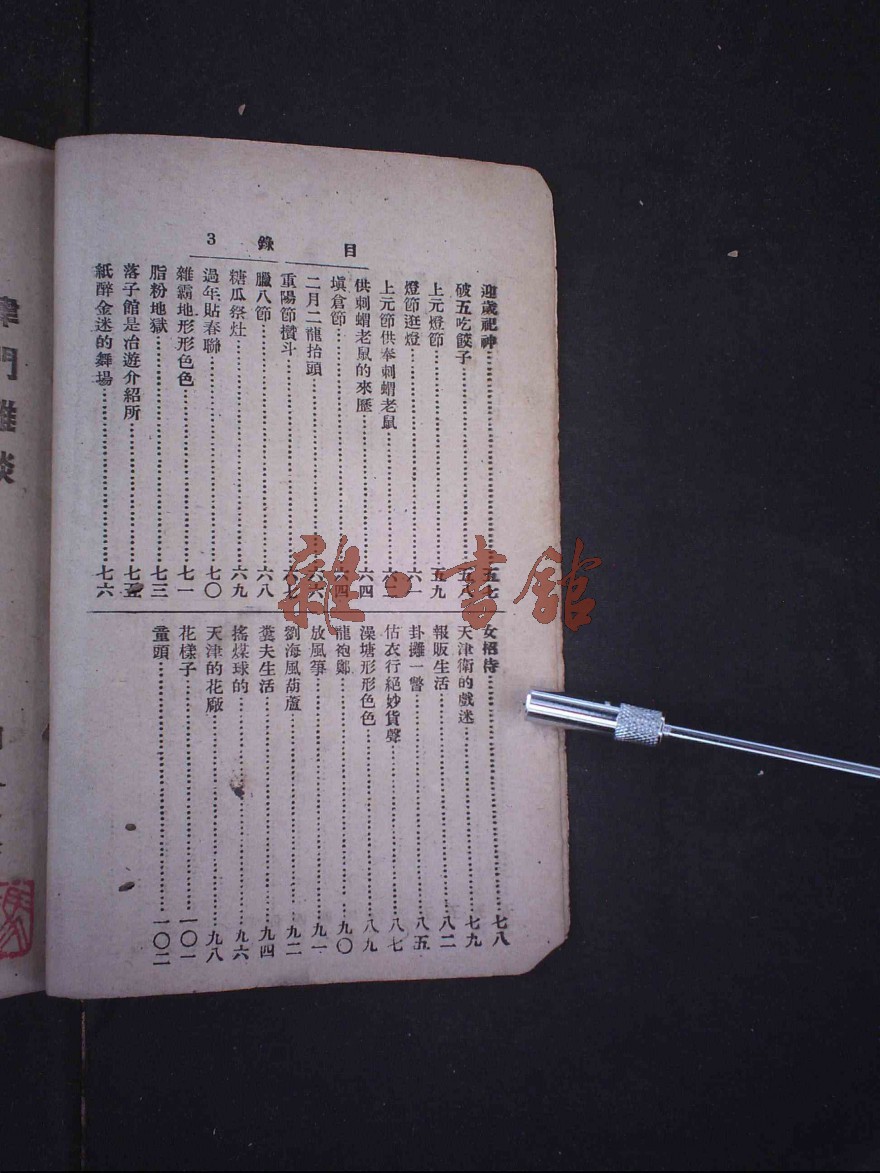 目錄 3
迎歲祀神 五七
破五吃餃子 五八
上元燈節 五九
燈節逛燈 六一
上元節供奉刺蝟老鼠 六三
供刺蝟老鼠的來歷 六四
塡倉節 六四
二月二龍抬頭 六六
重陽節攢斗 六七
臘八節 六八
糖瓜祭灶 六九
過年貼春聯 七〇
雜霸地形形色色 七一
脂粉地獄 七三
落子館是冶遊介紹所 七五
紙醉金迷的舞場 七六
女招待 七八
天津衛的戲迷 七九
報販生活 八二
卦攤一瞥 八五
估衣行絕妙貨聲 八七
澡塘形形色色 八九
龍袍鄭 九〇
放風箏 九一
劉海風葫蘆 九二
糞夫生活 九四
搖煤球的 九六
天津的花廠 九八
花樣子 一〇一
量頭 一〇二
津門雜談
雜·書館